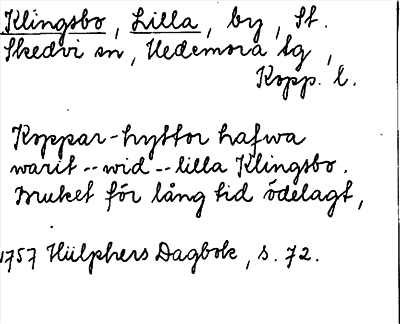 Klingsbo, Lilla, by, St.
Skedvi sn, Hedemora tg,
Kopp. l.
Koppar-hyttor hafwa
warit -- wid -- lilla Klingsbo.
Bruket för lång tid ödelagt,
1757 Hülphers Dagbok, s. 72.